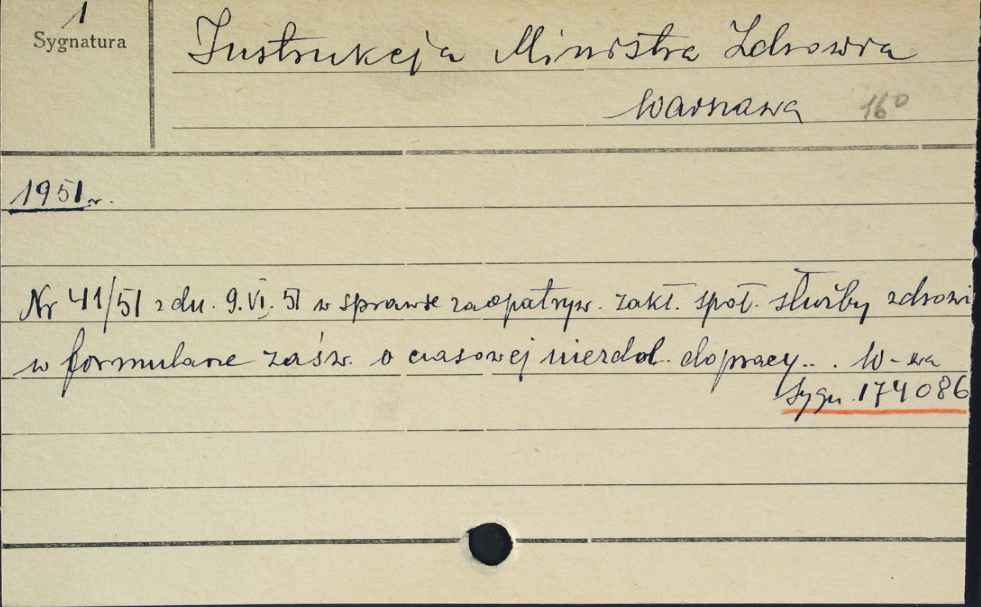 1
Sygnatura
Instrukcja Ministra Zdrowia
Warszawa 16°
1951 r.
Nr 41/51 z dn. 9.VI.51 w sprawie zaopatryw. zakł. społ. służby zdrowi
w formularze zaśw. o czasowej niezdol. do pracy.. . W-wa
Sygn. 174086